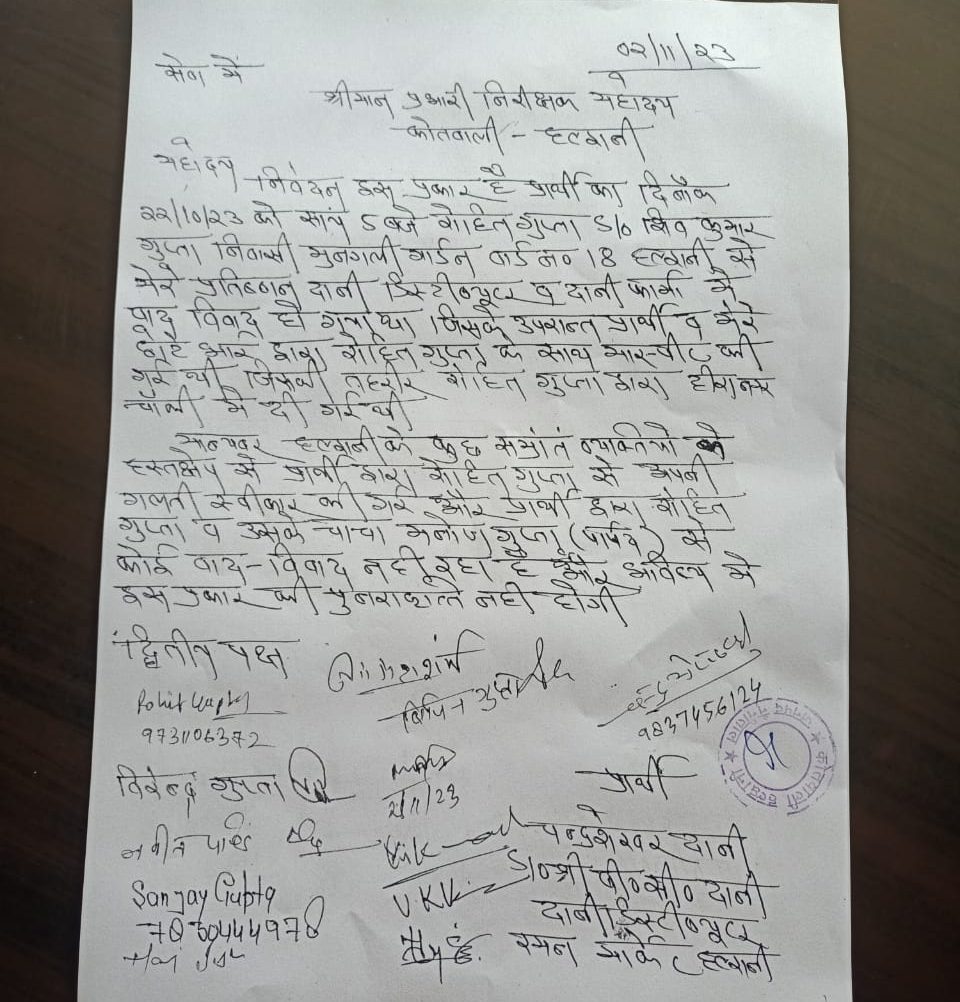 02/11/23
सेवा मे
श्रीमान प्रभारी निरीक्षक महोदय
कोतवाली - हल्द्वानी
महोदय
निवेदन इस प्रकार है प्रार्थी का दिनाँक
22/10/23 को सायं 5 बजे रोहित गुप्ता S/o शिव कुमार
गुप्ता निवासी मुनगली गार्डन वार्ड न० 18 हल्द्वानी से
मेरे प्रतिष्ठान दानी डिस्टीब्यूटर व दानी फार्मा मे
वाद विवाद हो गया था जिसके उपरान्त प्रार्थी व मेरे
छोटे भाई द्वारा रोहित गुप्ता के साथ मार-पीट की
गई थी जिसकी तहरीर रोहित गुप्ता द्वारा हीरानगर
चौकी मे दी गई थी
मान्यवर हल्द्वानी के कुछ सभ्रांत व्यक्तियो के
हस्तक्षेप से प्रार्थी द्वारा रोहित गुप्ता से अपनी
गलती स्वीकार की गई और प्रार्थी द्वारा रोहित
गुप्ता व उसके चाचा मनोज गुप्ता (पार्षद) से
कोई वाद-विवाद नही रहा है और भविष्य मे
इस प्रकार की पुनरावृत्ति नही होगी
द्वितीय पक्ष
विपिन गुप्ता
Rohit Gupta
9731106372
9837456124
विरेन्द्र गुप्ता
2/11/23
प्रार्थी
कोतवाली हल्द्वानी ★ जनपद नैनीताल ★
चन्द्रशेखर दानी
S/o श्री पी० सी० दानी
VKV
दानी डिस्टीब्यूटर
Sanjay Gupta
मार्केट हल्द्वानी